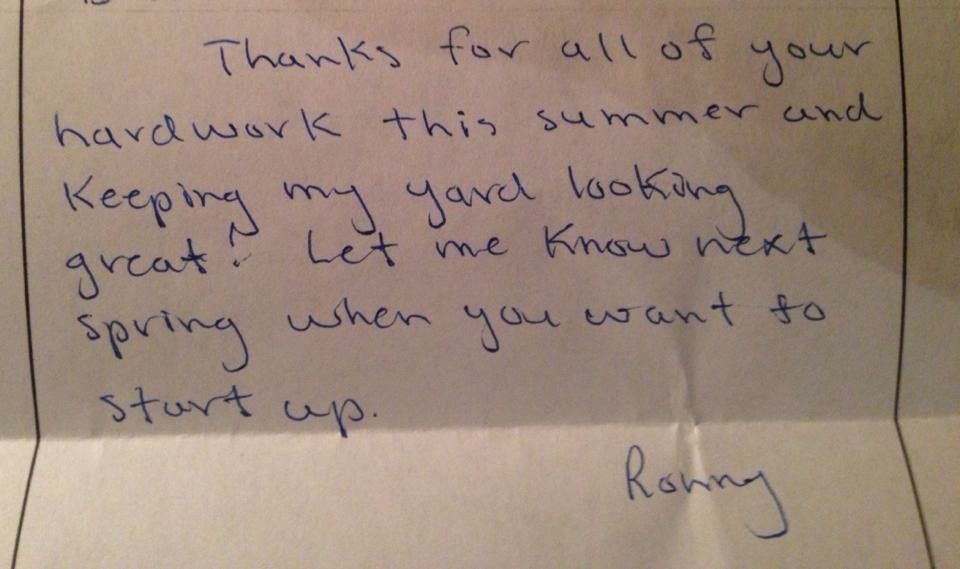 Thanks for all of your
hardwork this summer and
Keeping my yard looking
great! Let me know next
spring when you want to
start up.
Ronny